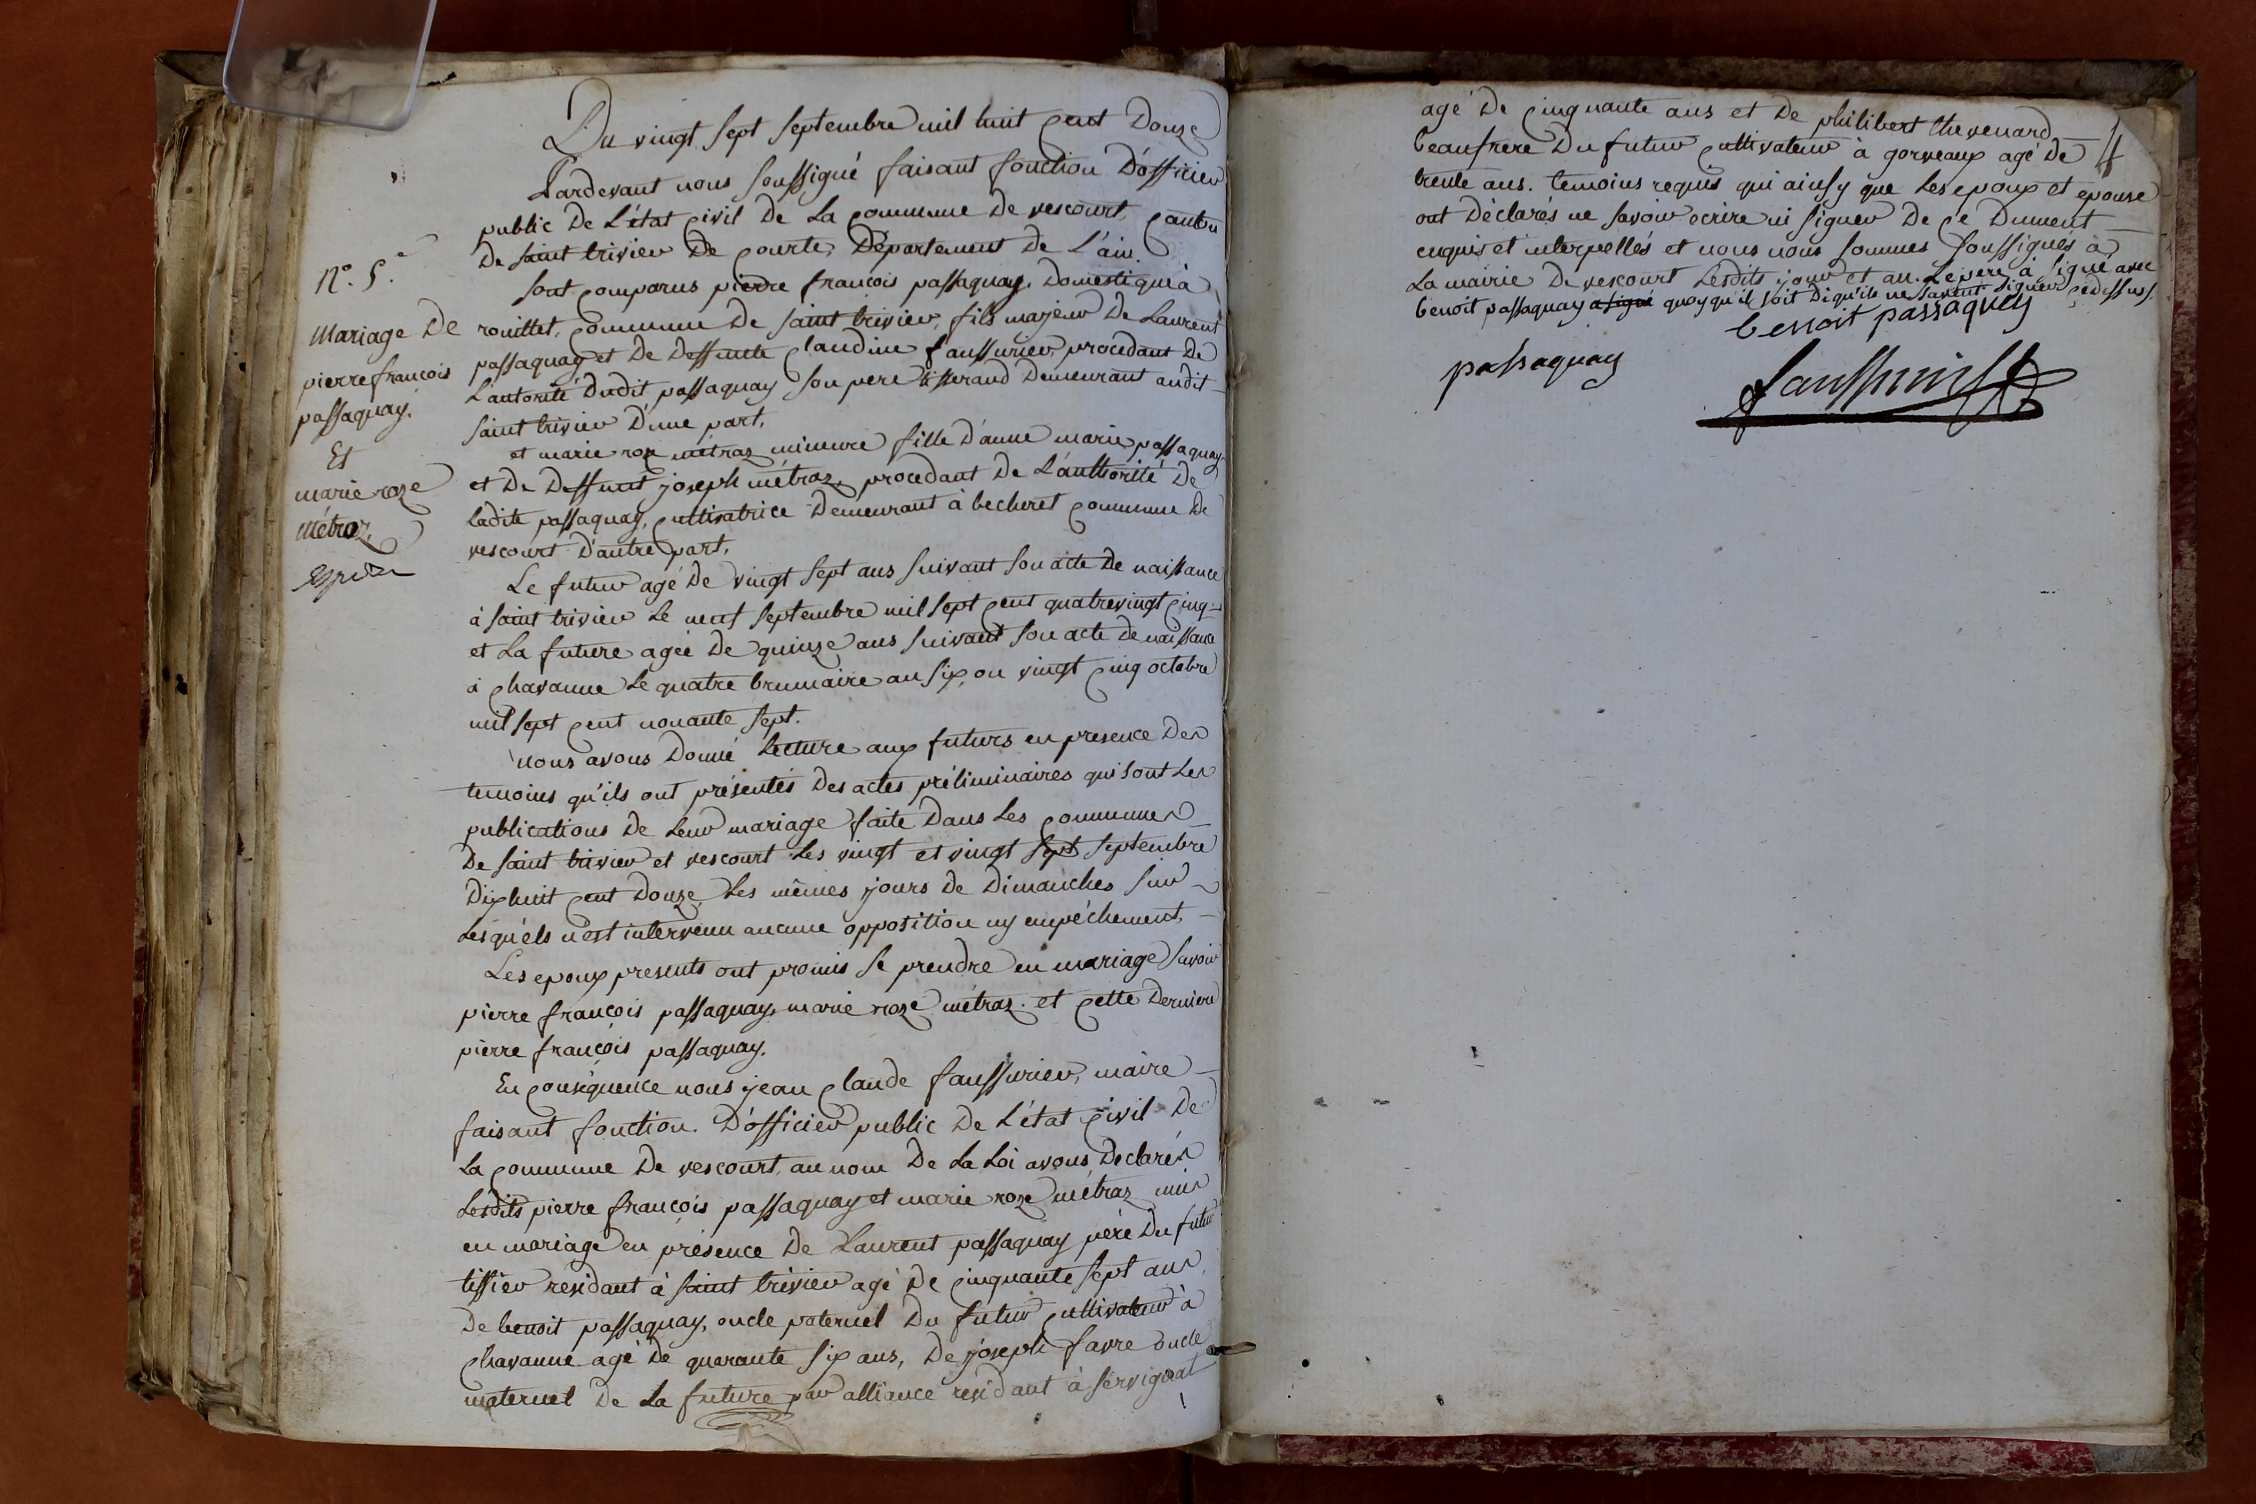 Du vingt sept septembre mil huit cent Douze
Pardevant nous soussigné faisant fonction D'officier
public De L'état civil De La commune De vescourt, canton
De saint trivier De courte, Département De L'ain.
sont comparus pierre françois passaquay. Domestique à
rouillet, commune De saint trivier, fils majeur De Laurent
passaquay et De Deffunte Claudine faussurier, procedant De
L'autorité Dudit passaquay son pere tisserand Demeurant audit
saint trivier D'une part,
et marie roze métraz mineure fille D'anne marie passaquay
et De Deffunt joseph métraz, procedant De L'authorité De
Ladite passaquay, cultivatrice Demeurant à becheret commune De
vescourt D'autre part,
Le futur agé De vingt sept ans suivant son acte De naissance
à saint trivier Le neuf septembre mil sept cent quatrevingt cinq
et La future agée De quinze ans suivant son acte De naissance
à chavanne Le quatre brumaire an six, ou vingt cinq octobre
mil sept cent nonante sept.
Nous avons Donné Lecture aux futurs en presence Des
temoins qu'ils ont présentés Des actes préliminaires qui sont Les
publications De Leur mariage faite Dans Les communes
De saint trivier et vescourt Les vingt et vingt sept septembre
Dix huit cent Douze, Les mêmes jours de Dimanches sur
Lesquéls n'est intervenu aucune opposition ny empéchement,
Les epoux presents ont promis se prendre en mariage savoir
pierre françois passaquay, marie roze métraz. et cette Derniere
pierre françois passaquay.
En conséquence nous jean claude faussurier, maire
faisant fonction. D'officier public De L'état civil De
La commune De vescourt, au nom De La Loi avons Declarés
Lesdits pierre françois passaquay et marie roze métraz unis
en mariage en présence De Laurent passaquay père Du futur
tissier residant à saint trivier agé De cinquante sept ans,
De benoit passaquay, oncle paternel Du futur cultivateur à
chavanne agé De quarante six ans, De joseph favre oncle
maternel De La future par alliance résidant à servignat
N.° 5.e
Mariage De
pierre françois
passaquay.
Et
marie roze
Métraz.
4
agé De cinquante ans et De philibert thevenard
beaufrere Du futur cultivateur à gorveaux agé De
trente ans. temoins requis qui ainsy que Les epoux et epouse
ont Déclarés ne savoir ecrire ni signer De ce Dument
enquis et interpellés et nous nous sommes soussignés à
La mairie De vescourt Lesdits jour et an. Le pere à signé avec
benoit passaquay a signé quoy qu'il soit Di qu'ils ne savent signer cedessus.
benoit passaquay
passaquay
faussurier